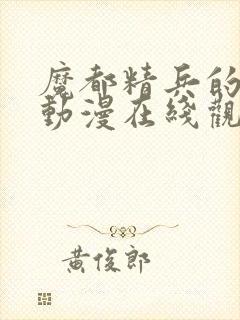 魔都精兵的
動漫在綫觀
黃俊郎